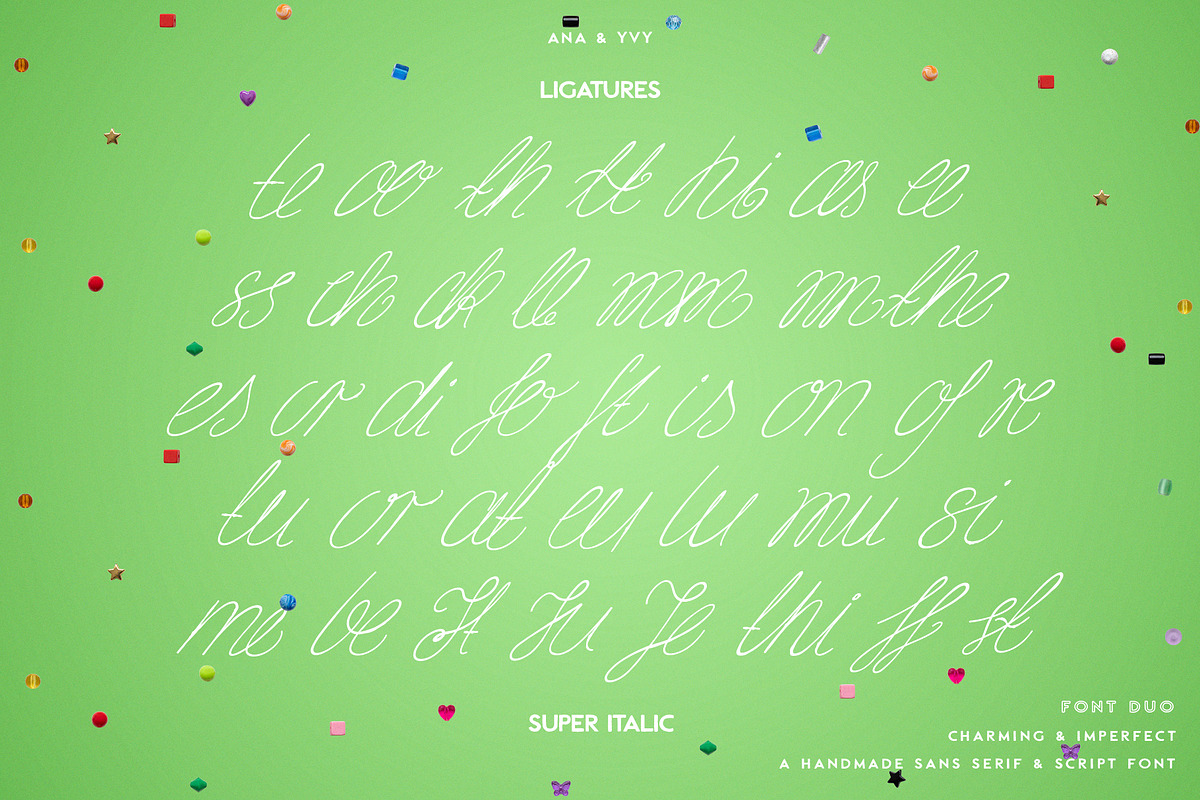 ANA & YVY
LIGATURES
te oo th tt hi as ee
ss ch ck ll mm mthe
es or di fo ft is on of re
tu or at eu lu mu si
me be It Iu Je thi ff st
SUPER ITALIC
FONT DUO
CHARMING & IMPERFECT
A HANDMADE SANS SERIF & SCRIPT FONT